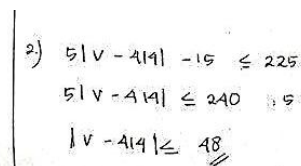 2.) 5|V - 414| - 15 ≤ 225
5|V - 414| ≤ 240 : 5
|V - 414| ≤ 48